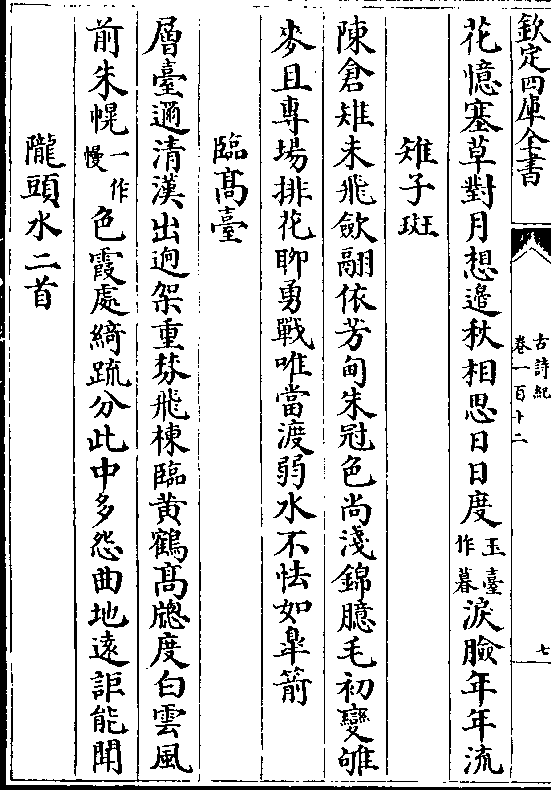 欽定四庫全書
古詩紀
卷一百十二
七
花憶塞草對月想邉秋相思日日度玉臺作暮淚臉年年流
雉子斑
陳倉雉未飛歛翮依芳甸朱冠色尚淺錦臆毛初變雊
麥且專場排花聊勇戰唯當渡弱水不怯如臯箭
臨髙臺
層臺邇清漢出逈架重棼飛棟臨黃鶴髙牕度白雲風
前朱幌一作幔色霞處綺疏分此中多怨曲地遠詎能聞
隴頭水二首